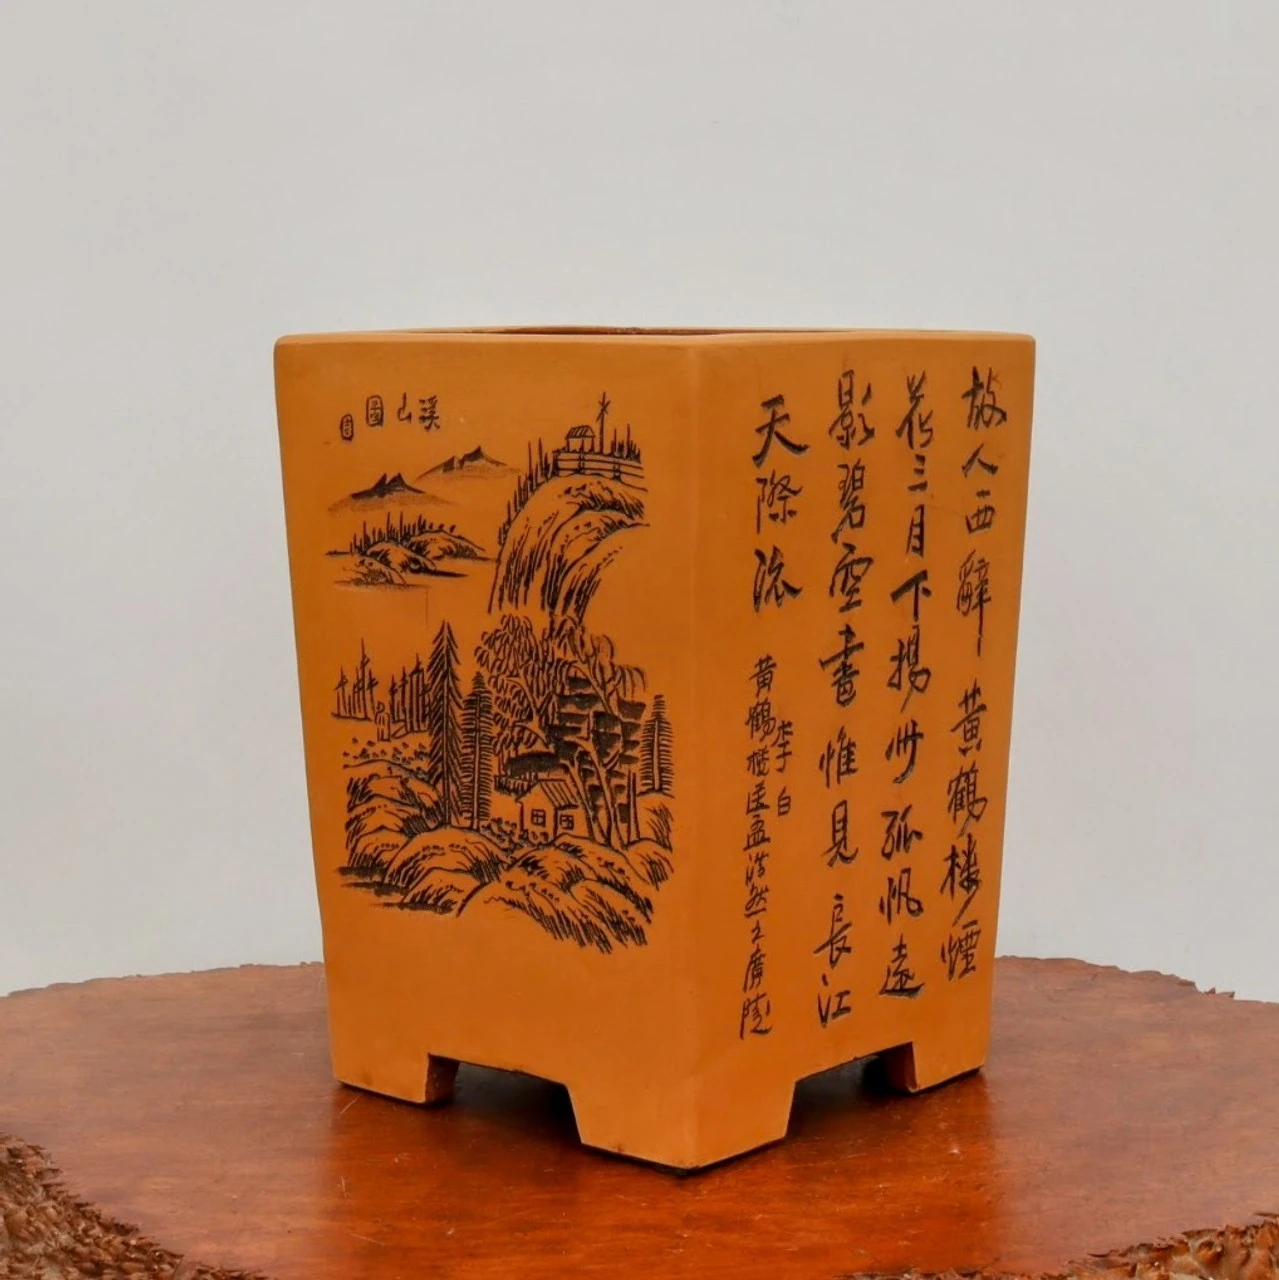 溪山圖
故人西辭黄鶴楼煙
花三月下揚州孤帆遠
影碧空盡惟見長江
天際流
李白
黄鶴楼送孟浩然之廣陵